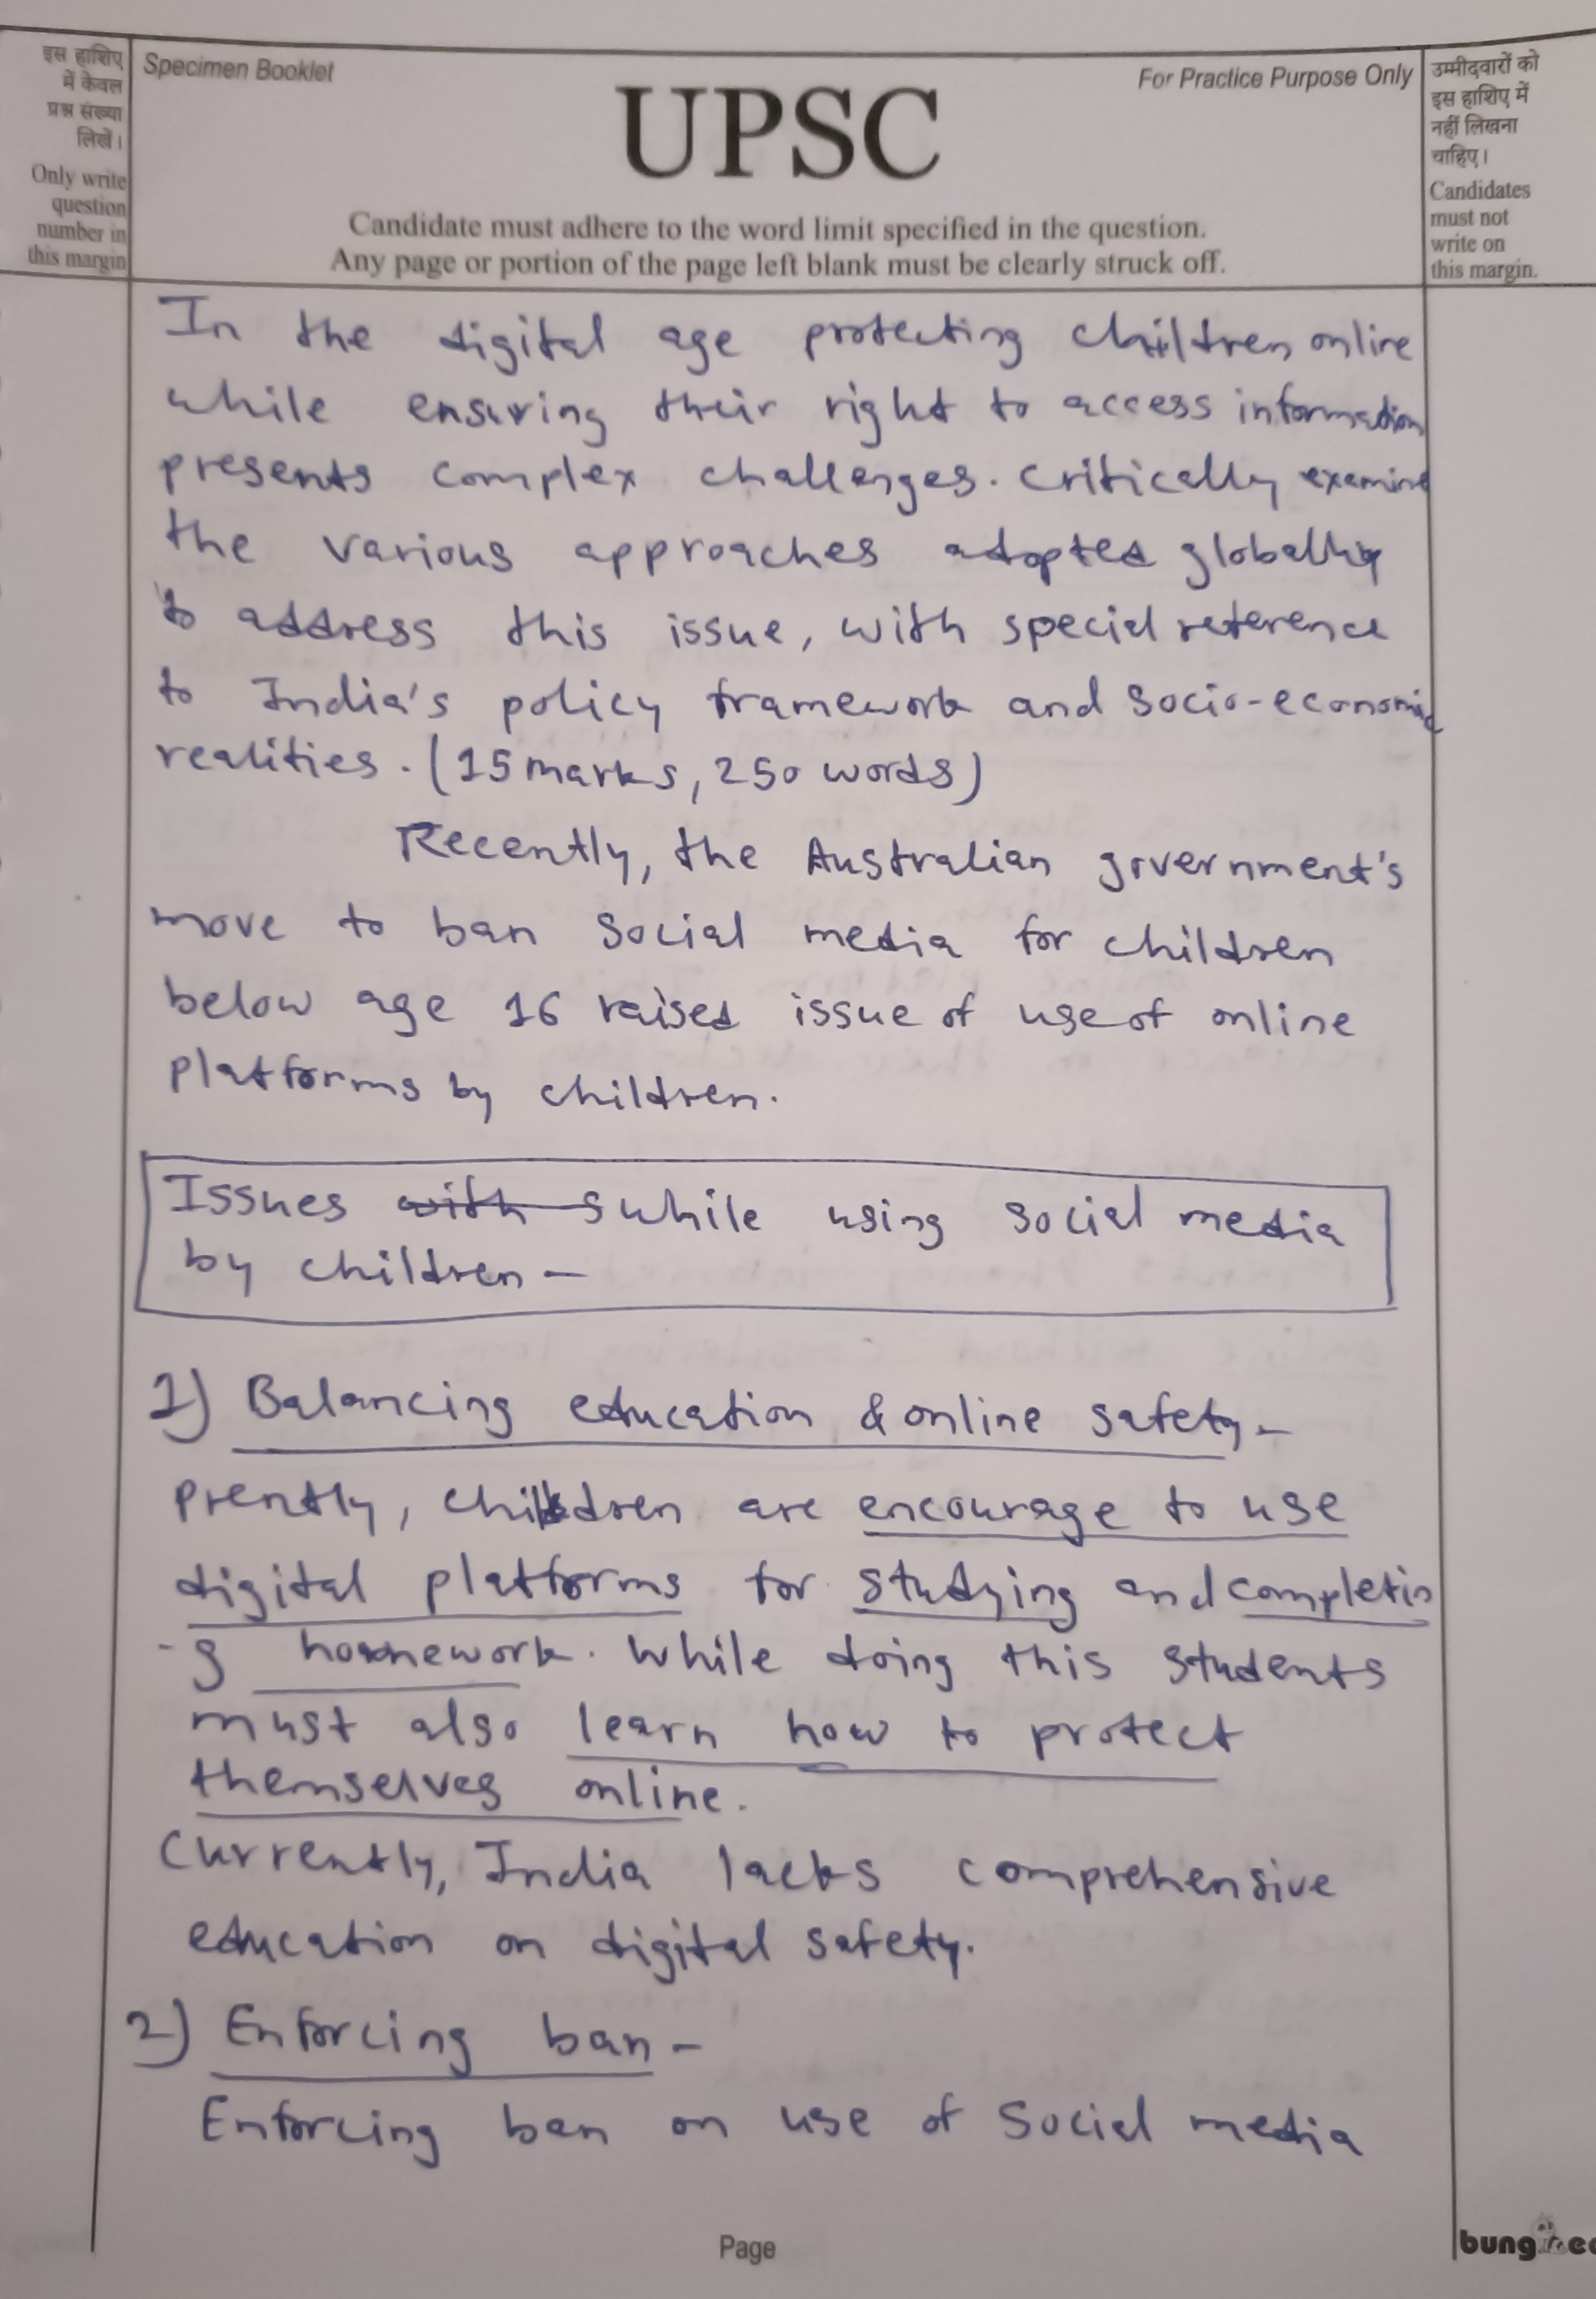 इस हाशिए
में केवल
प्रश्न संख्या
लिखें।
Only write
question
number in
this margin
Specimen Booklet
For Practice Purpose Only
UPSC
Candidate must adhere to the word limit specified in the question.
Any page or portion of the page left blank must be clearly struck off.
उम्मीदवारों को
इस हाशिए में
नहीं लिखना
चाहिए।
Candidates
must not
write on
this margin.
In the digital age protecting children online
while ensuring their right to access information
presents complex challenges. Critically examine
the various approaches adopted globally
to address this issue, with special reference
to India's policy framework and socio-economic
realities. (15 marks, 250 words)
Recently, the Australian government's
move to ban social media for children
below age 16 raised issue of use of online
platforms by children.
Issues with while using social media
by children -
1) Balancing education & online safety -
Prently, children are encourage to use
digital platforms for studying and completin
-g homework. While doing this students
must also learn how to protect
themselves online.
Currently, India lacks comprehensive
education on digital safety.
2) Enforcing ban -
Enforcing ban on use of social media
Page